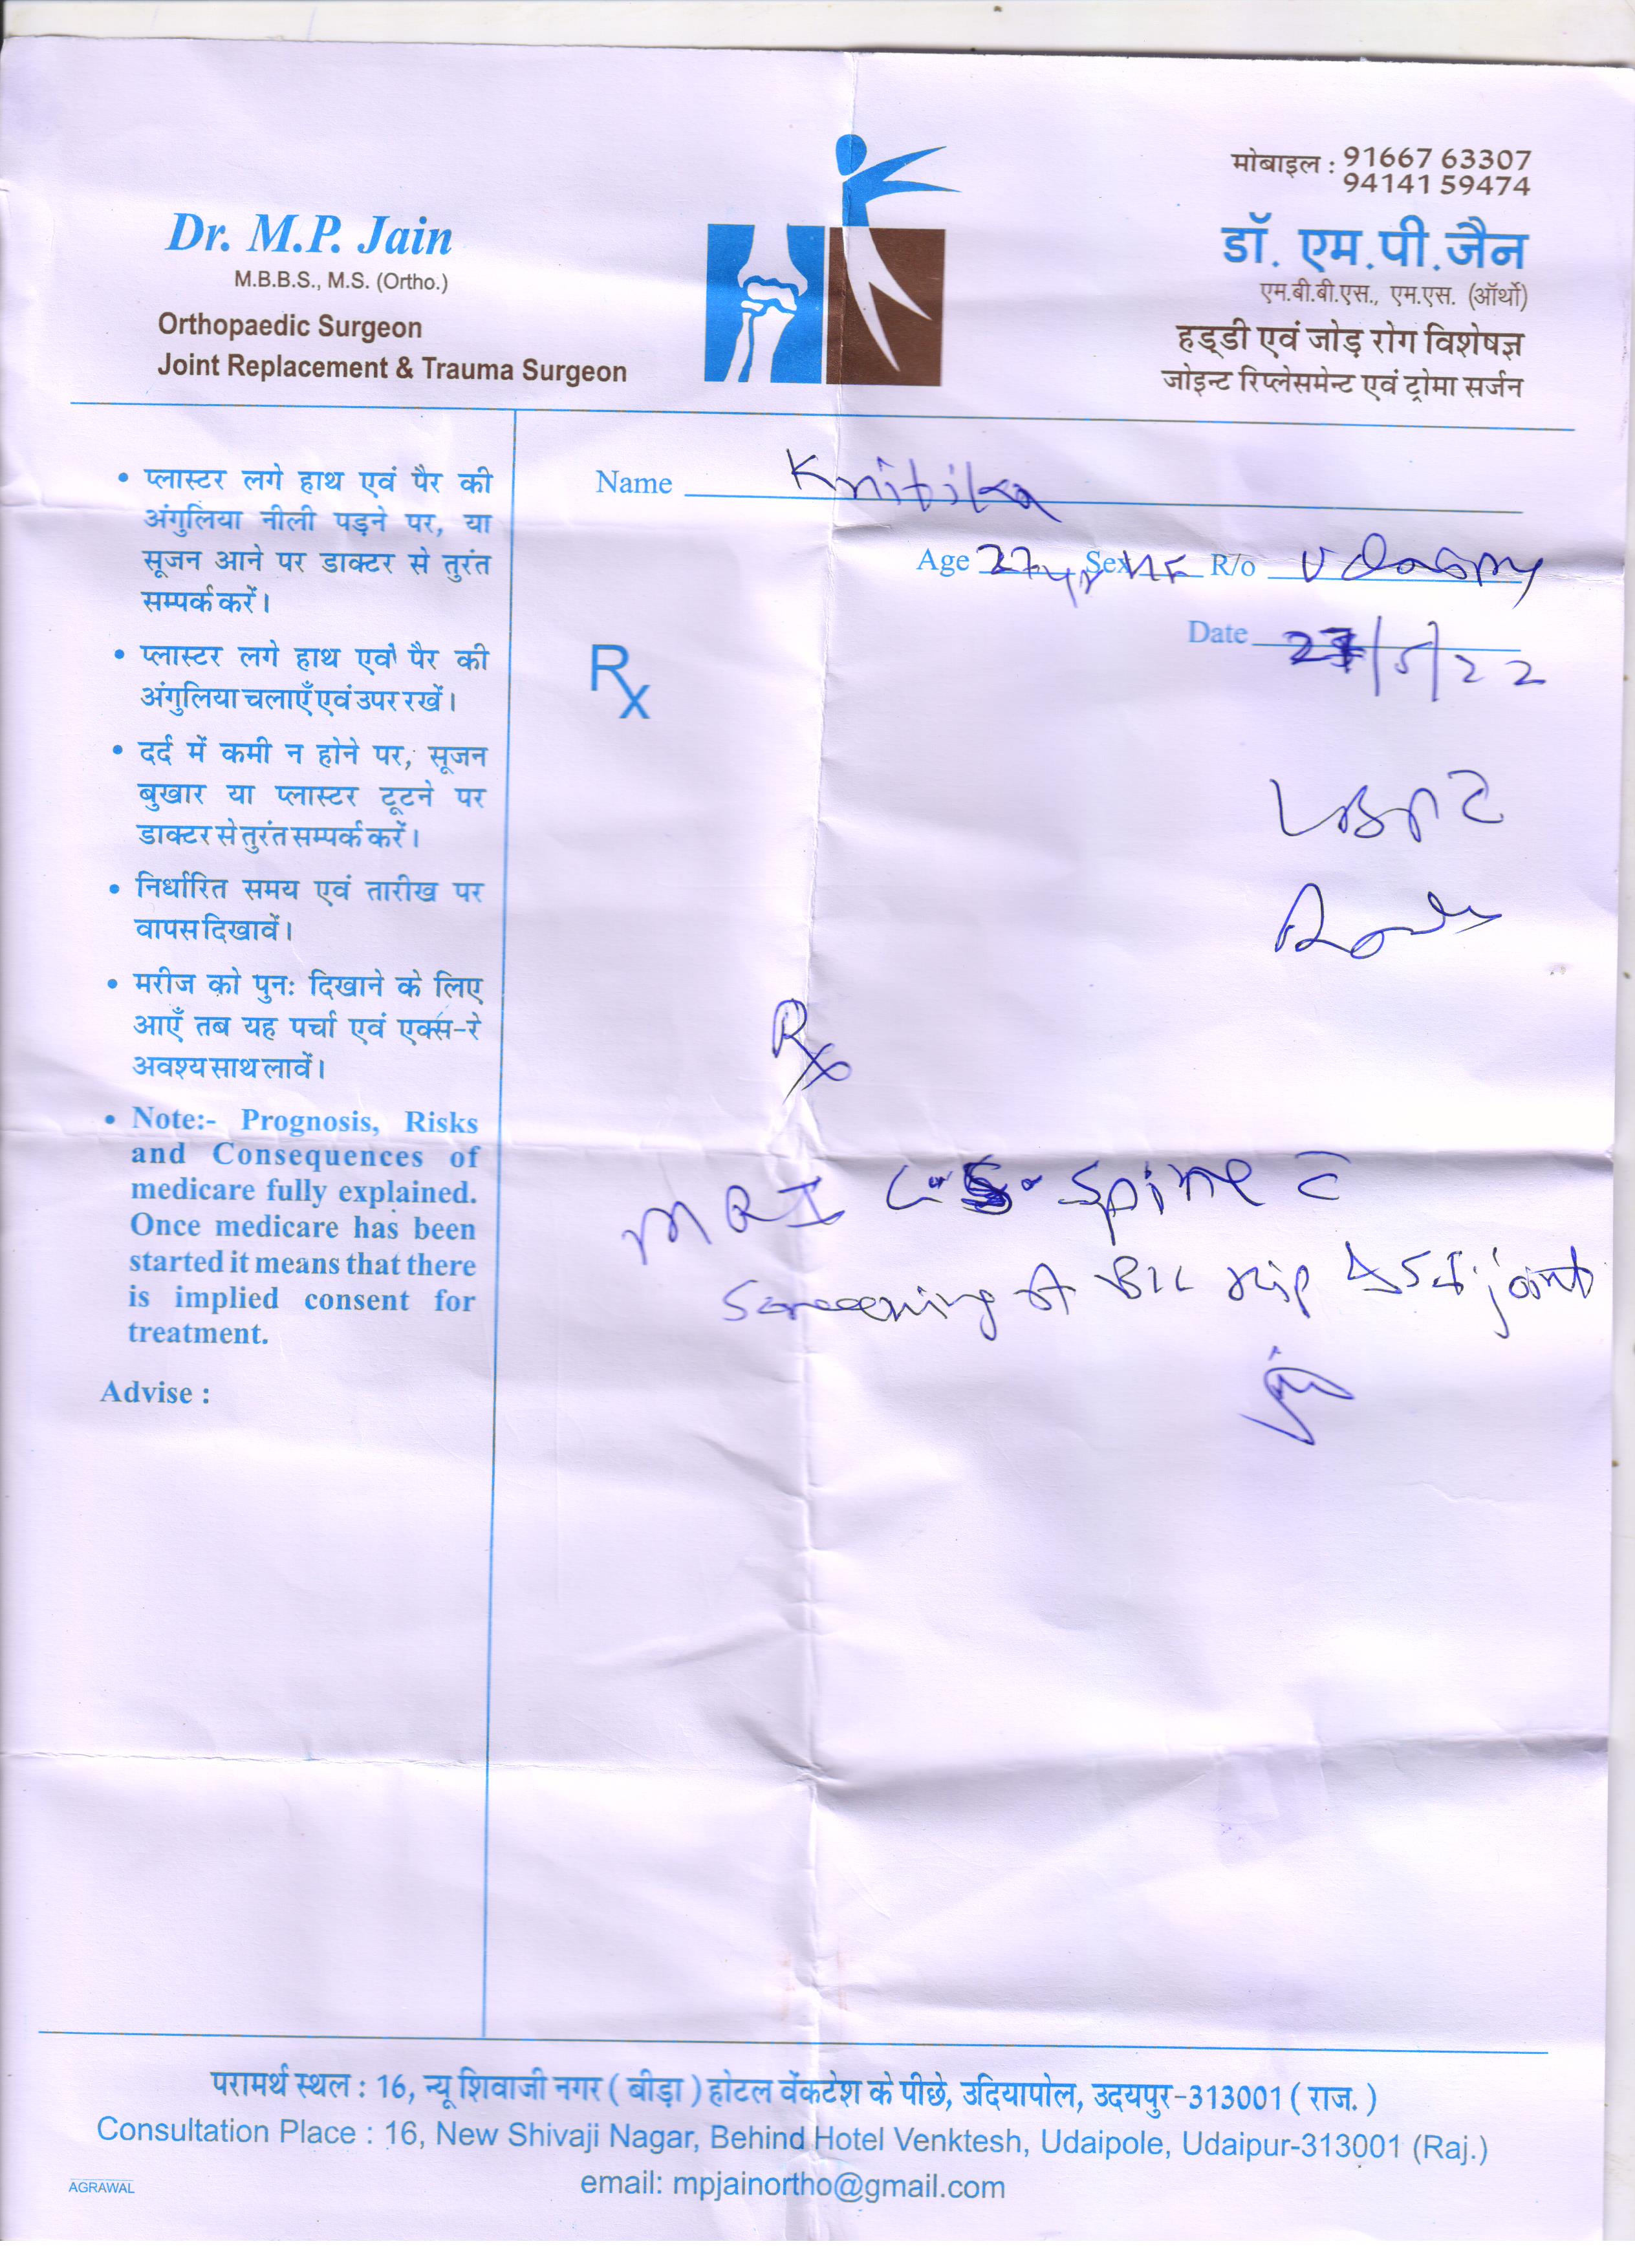 मोबाइल : 91667 63307
94141 59474
Dr. M.P. Jain
M.B.B.S., M.S. (Ortho.)
Orthopaedic Surgeon
Joint Replacement & Trauma Surgeon
डॉ. एम.पी.जैन
एम.बी.बी.एस., एम.एस. (ऑर्थो)
हड्डी एवं जोड़ रोग विशेषज्ञ
जोइन्ट रिप्लेसमेन्ट एवं ट्रोमा सर्जन
• प्लास्टर लगे हाथ एवं पैर की
अंगुलिया नीली पड़ने पर, या
सूजन आने पर डाक्टर से तुरंत
सम्पर्क करें।
• प्लास्टर लगे हाथ एवं पैर की
अंगुलिया चलाएँ एवं उपर रखें।
• दर्द में कमी न होने पर, सूजन
बुखार या प्लास्टर टूटने पर
डाक्टर से तुरंत सम्पर्क करें।
• निर्धारित समय एवं तारीख पर
वापस दिखावें।
• मरीज को पुनः दिखाने के लिए
आएँ तब यह पर्चा एवं एक्स-रे
अवश्य साथ लावें।
• Note:- Prognosis, Risks
and Consequences of
medicare fully explained.
Once medicare has been
started it means that there
is implied consent for
treatment.
Advise :
Name Kritika
Age 27 yr Sex F R/o Udaipur
Date /5/22
Rx
Rx
MRI Spine c̄
Screening of B/L Hip & S.I. joint
परामर्थ स्थल : 16, न्यू शिवाजी नगर ( बीड़ा ) होटल वेंकटेश के पीछे, उदियापोल, उदयपुर-313001 ( राज. )
Consultation Place : 16, New Shivaji Nagar, Behind Hotel Venktesh, Udaipole, Udaipur-313001 (Raj.)
email: mpjainortho@gmail.com
AGRAWAL